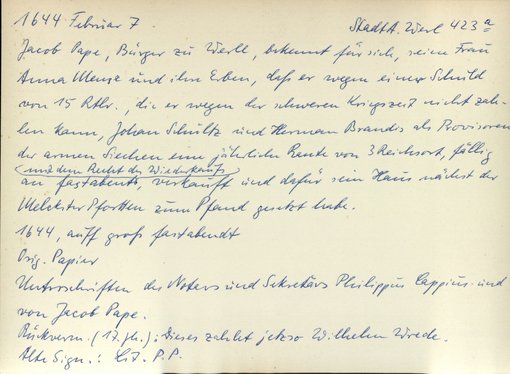 1644 Februar 7 StadtA. Werl 423a
Jacob Pape, Bürger zu Werll, bekennt für sich, seine Frau
Anna Menze und ihre Erben, daß er wegen einer Schuld
von 15 Rtlr., die er wegen der schweren Kriegszeit nicht zah-
len kann, Johan Schültz und Herman Brandis als Provisoren
der armen Siechen eine jährliche Rente von 3 Reichsort, fällig
(mit dem Recht des Wiederkaufs)
an fastabent, verkauft und dafür sein Haus nächst der
Melckster Pfortten zum Pfand gesetzt habe.
1644, auff groß fastabendt
Orig. Papier
Unterschriften des Notars und Sekretärs Philippus Cappius und
von Jacob Pape.
Rückverm. (17. Jh.): Dieses zahlet jetzo Wilhelm Wrede.
Alte Sign.: Lit. P.P.